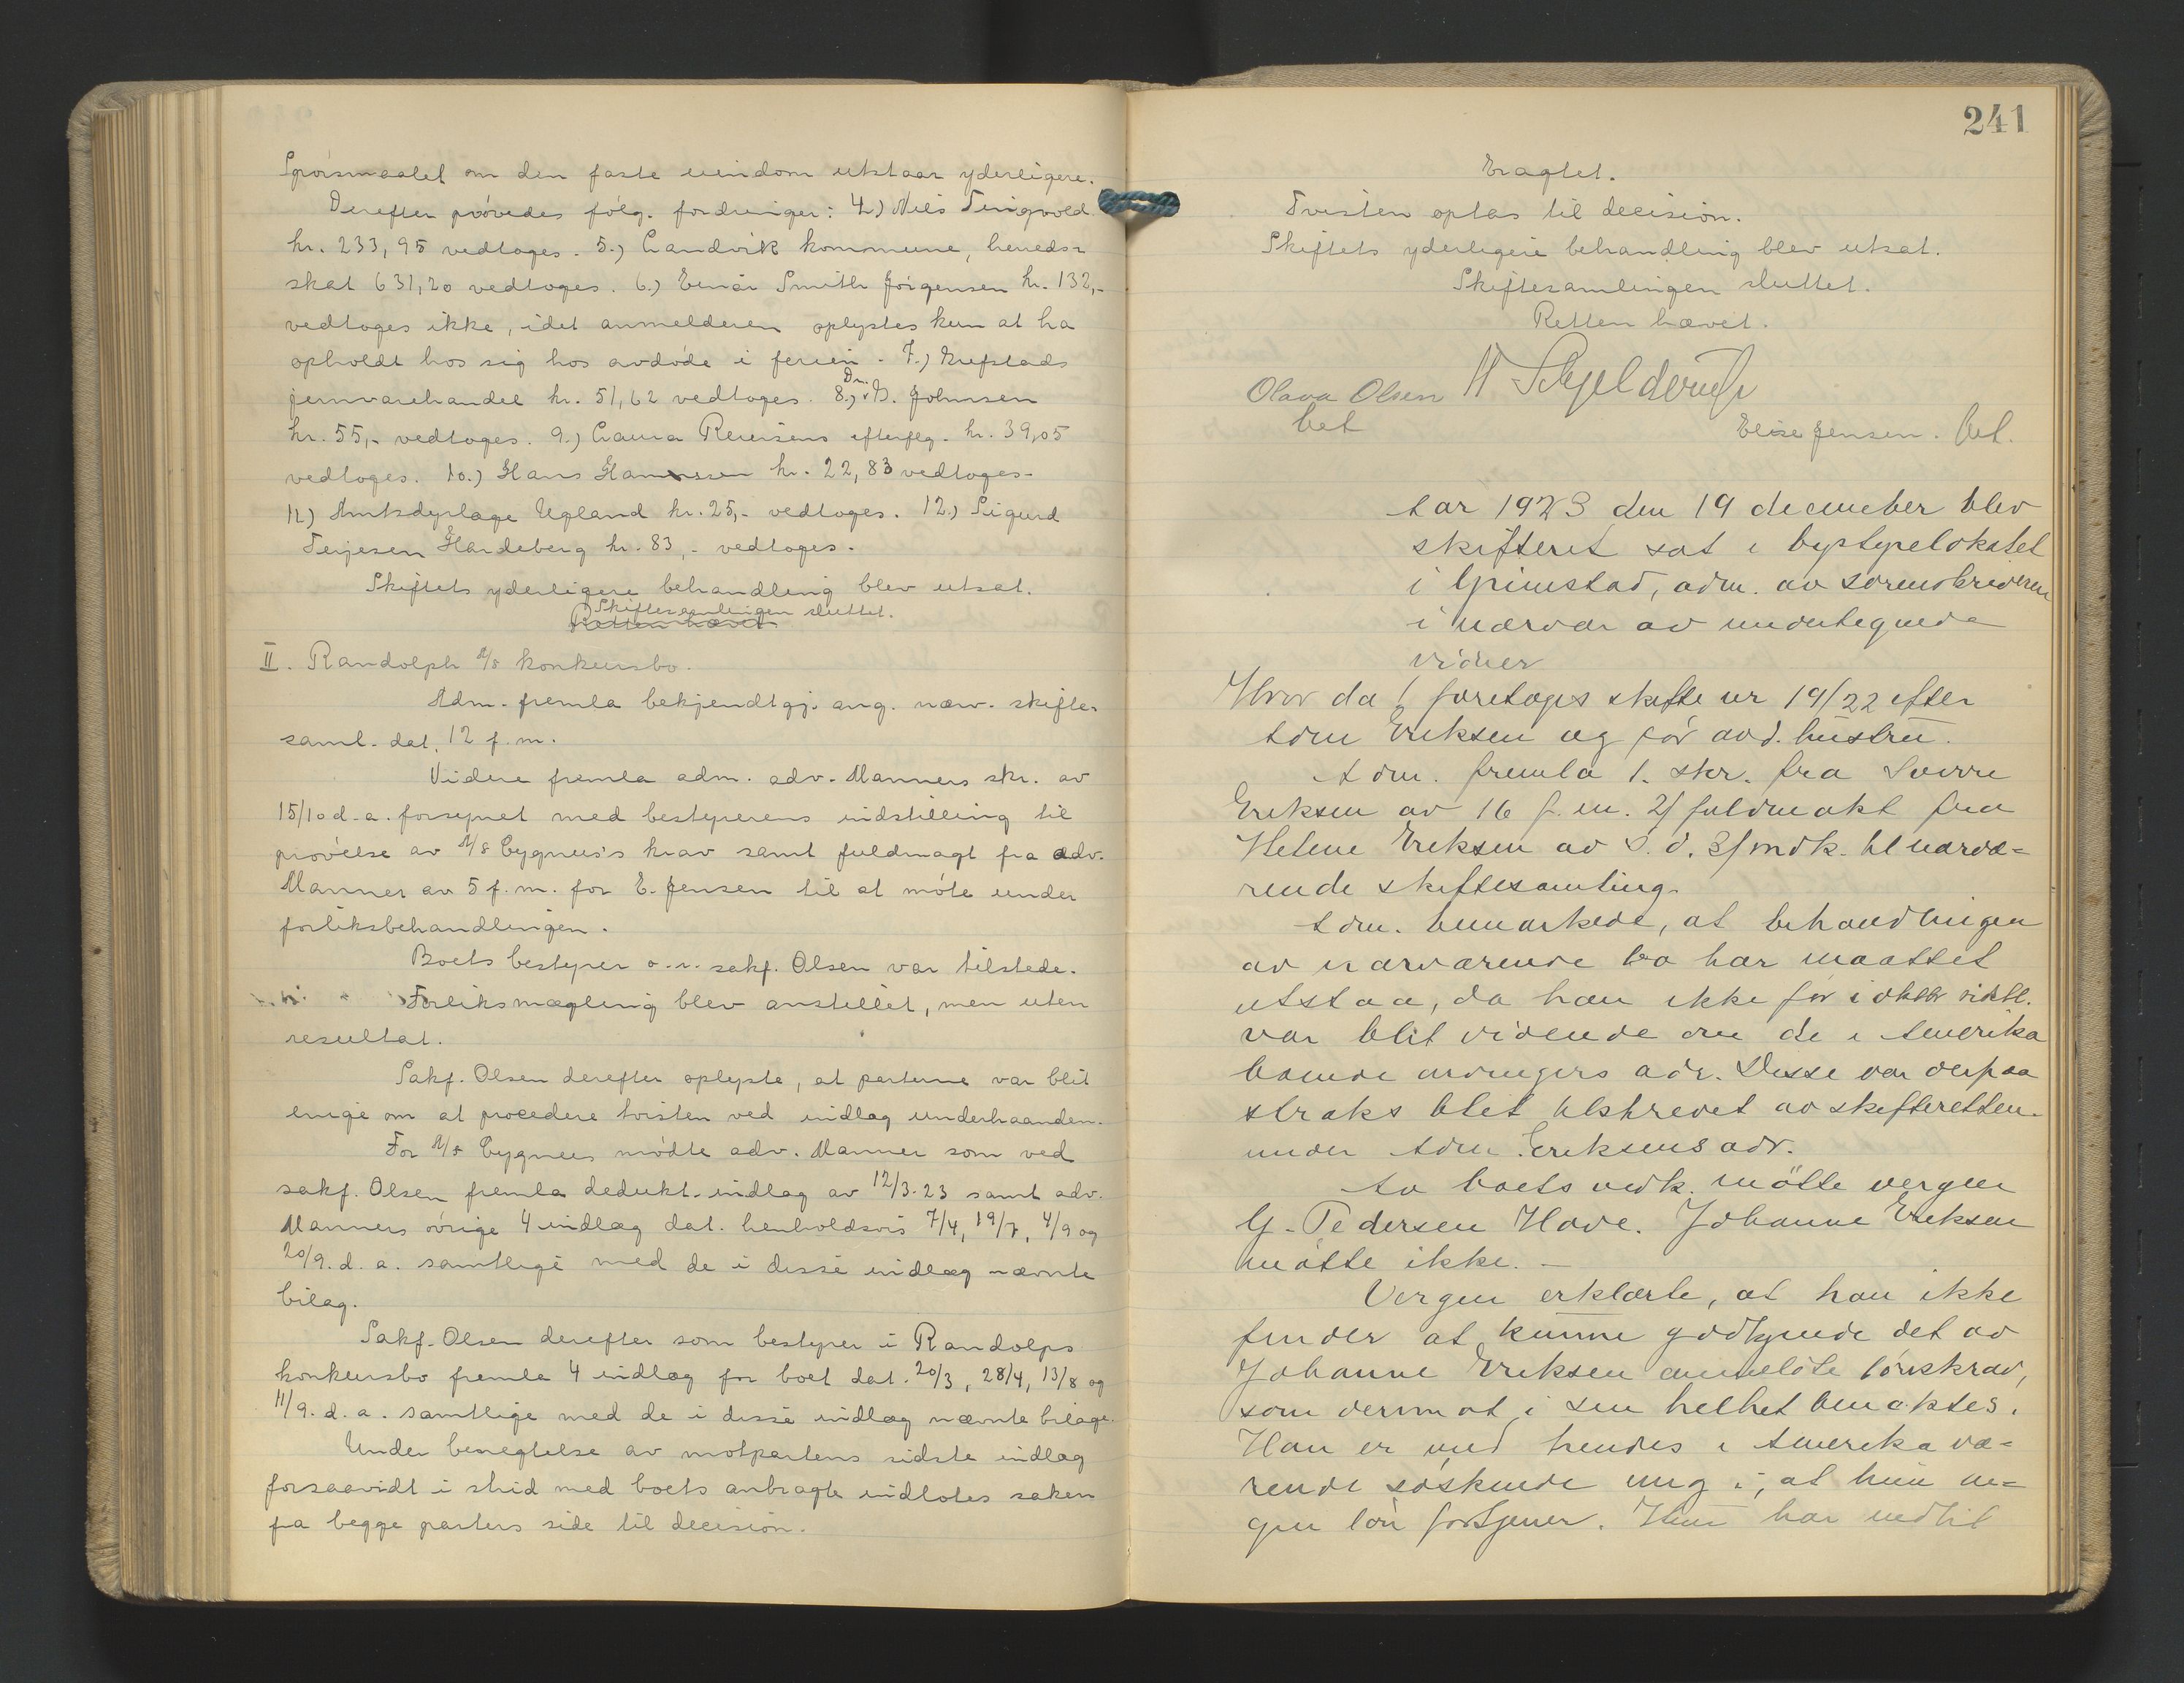 Spörsmaalet om den faste eiendom utstaar yderligere.
Derefter prövedes fölg. fordringer: 4.) Nils Terigvold
kr. 233,95 vedtoges. 5.) Landvik kommune, hereds-
skat 631,20 vedtoges. 6.) Einar Smith Jörgensen kr. 132,-
vedtoges ikke, idet anmelderen oplystes kun at ha
opholdt hos sig hos avdöde i ferien. 7.) Grefstads
jernvarehandel kr. 51,62 vedtoges. 8.) Dr. B. Johnsen
kr. 55,- vedtoges. 9.) Laura Reiersens efterflg. kr. 39,05
vedtoges. 10.) Hans Hanssen kr. 22,83 vedtoges.
11.) Amtsdyrlæge Ugland kr. 25,- vedtoges. 12.) Sigurd
Terjesen Hardeberg kr. 83,- vedtoges.
Skiftets yderligere behandling blev utsat.
Skiftesamlingen sluttet.
Retten hævet
II. Randolph A/S konkursbo.
Adm. fremla bekjendtgj. ang. nærv. skifte-
saml. dat. 12 f. m.
Videre fremla adm. adv. Manners skr. av
15/10 d. a. forsynet med bestyrerens indstilling til
prövelse av A/S Cygnus's krav samt fuldmagt fra adv.
Manner av 5 f. m. for E. Jensen til at möte under
forliksbehandlingen.
Boets bestyrer o.r. sakf. Olsen var tilstede.
Forliksmægling blev anstillet, men uten
resultat.
Sakf. Olsen derefter oplyste, at parterne var blit
enige om at procedere tvisten ved indlæg underhaanden.
For A/S Cygnus mödte adv. Manner som ved
sakf. Olsen fremla dedukt. indlæg av 12/3.23 samt adv.
Manners övrige 4 indlæg dat. henholdsvis 7/4, 19/7, 4/9 og
20/9. d. a. samtlige med de i disse indlæg nævnte
bilag.
Sakf. Olsen derefter som bestyrer i Randolps
konkursbo fremla 4 indlæg for boet dat. 20/3, 28/4, 13/8 og
11/9. d. a. samtlige med de i disse indlæg nævnte bilage.
Under benegtelse av motpartens sidste indlæg
forsaavidt i strid med boets anbragte indlotes saken
fra begge parters side til decision.
241
Eragtet.
Tvisten optas til decision.
Skiftets yderligere behandling blev utsat.
Skiftesamlingen sluttet.
Retten hævet.
Olava Olsen H Schjelderup
bet
Elise Jensen. bet.
Aar 1923 den 19 december blev
skifteret sat i bystyrelokalet
i Grimstad, adm. av sorenskriveren
i nærvær av undertegnede
vidner
Hvor da foretoges skifte nr 19/22 efter
Adm Eriksen og før avd. hustru.
Adm. fremla 1. skr. fra Sverre
Eriksen av 16 f. m. 2/ fuldmakt fra
Helene Eriksen av s. d. 3/ indk. til nærvæ=
rende skiftesamling.
Adm. bemærkede, at behandlingen
av nærværende bo har maattet
utstaa, da han ikke før i oktbr sidstl.
var blit vidende om de i Amerika
boende arvingers adr. Disse var derpaa
straks blit tilskrevet av skifteretten
under Adm Eriksens adr.
Av boets vedk. mötte vergen
G. Pedersen Hove. Johanne Eriksen
mötte ikke. –
Vergen erklærte, at han ikke
finder at kunne godkjende det av
Johanne Eriksen anmeldte lönskrav,
som derimot i sin helhet benektes.
Han er med hendes i Amerika væ=
rende söskende enig i, at hun in=
gen lön fortjener. Hun har indtil